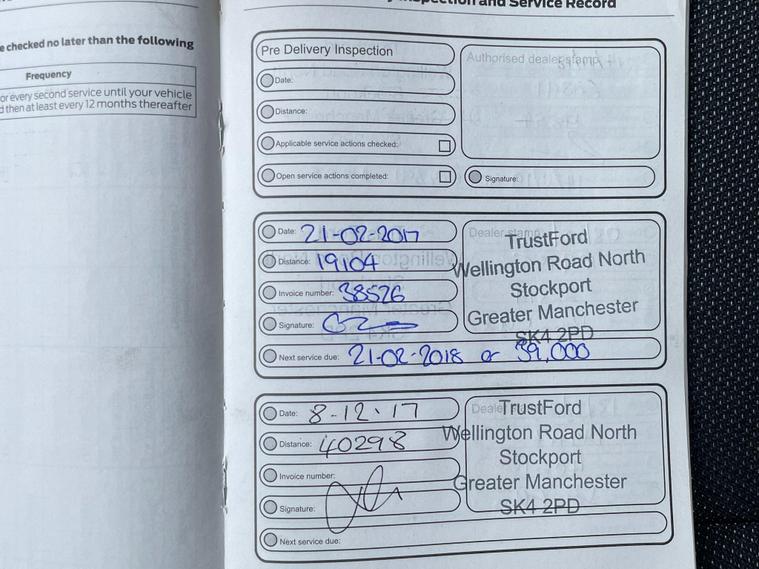 pection and Service Record
e checked no later than the following
Frequency
or every second service until your vehicle
d then at least every 12 months thereafter
Pre Delivery Inspection
Authorised dealer stamp
Date:
Distance:
Applicable service actions checked:
Open service actions completed:
Signature:
Date: 21-02-2017
Distance: 19104
Invoice number: 38526
Signature:
Dealer stamp
TrustFord
Wellington Road North
Stockport
Greater Manchester
SK4 2PD
Next service due: 21-02-2018 or 39,000
Date: 8-12-17
Distance: 40298
Invoice number:
Signature:
Deale
TrustFord
Wellington Road North
Stockport
Greater Manchester
SK4 2PD
Next service due: